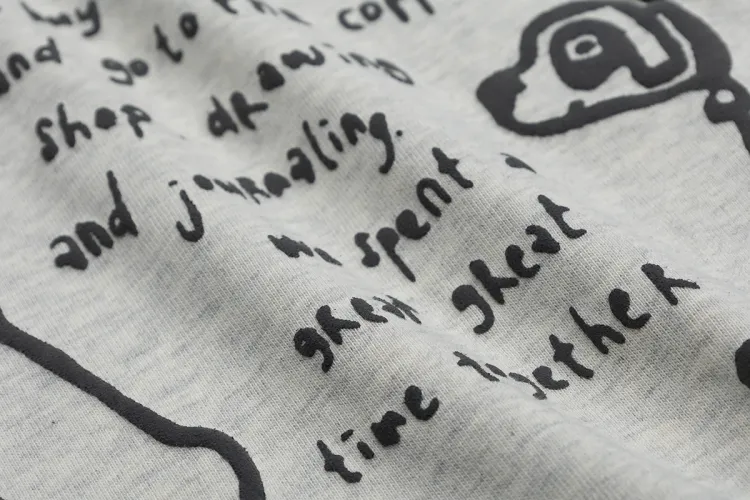 buy
and go to the
shop drawing
and journaling.
we spent
great great
time together